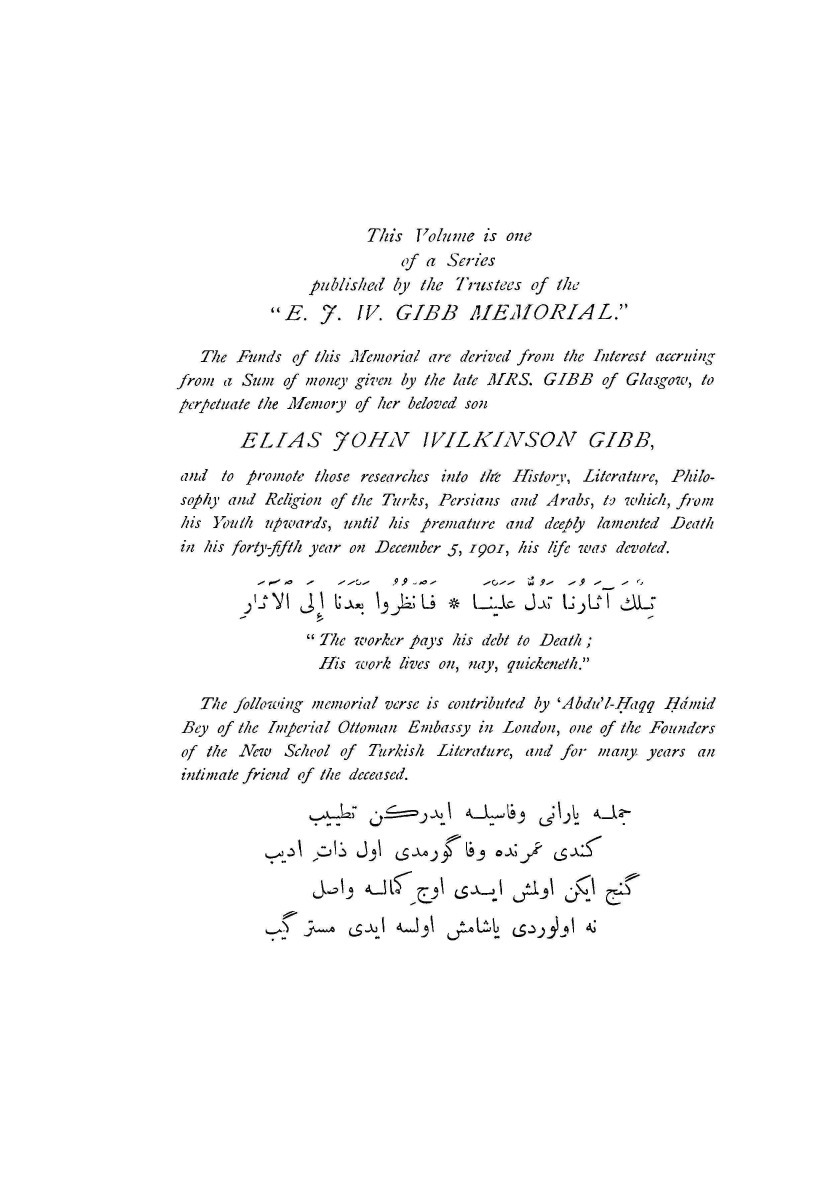 This Volume is one
of a Series
published by the Trustees of the
"E. J. W. GIBB MEMORIAL."
The Funds of this Memorial are derived from the Interest accruing
from a Sum of money given by the late MRS. GIBB of Glasgow, to
perpetuate the Memory of her beloved son
ELIAS JOHN WILKINSON GIBB,
and to promote those researches into the History, Literature, Philo-
sophy and Religion of the Turks, Persians and Arabs, to which, from
his Youth upwards, until his premature and deeply lamented Death
in his forty-fifth year on December 5, 1901, his life was devoted.
تِلْكَ آثَارُنَا تَدُلُّ عَلَيْنَا * فَانْظُرُوا بَعْدَنَا إِلَى الْآثَارِ
"The worker pays his debt to Death;
His work lives on, nay, quickeneth."
The following memorial verse is contributed by 'Abdu'l-Ḥaqq Ḥámid
Bey of the Imperial Ottoman Embassy in London, one of the Founders
of the New School of Turkish Literature, and for many years an
intimate friend of the deceased.
جمله یارانی وفاسیله ایدركن تطییب
كندی عمرنده وفا گورمدی اول ذاتِ ادیب
گنج ایكن اولمش ایدی اوجِ كماله واصل
نه اولوردی یاشامش اولسه ایدی مستر گیب